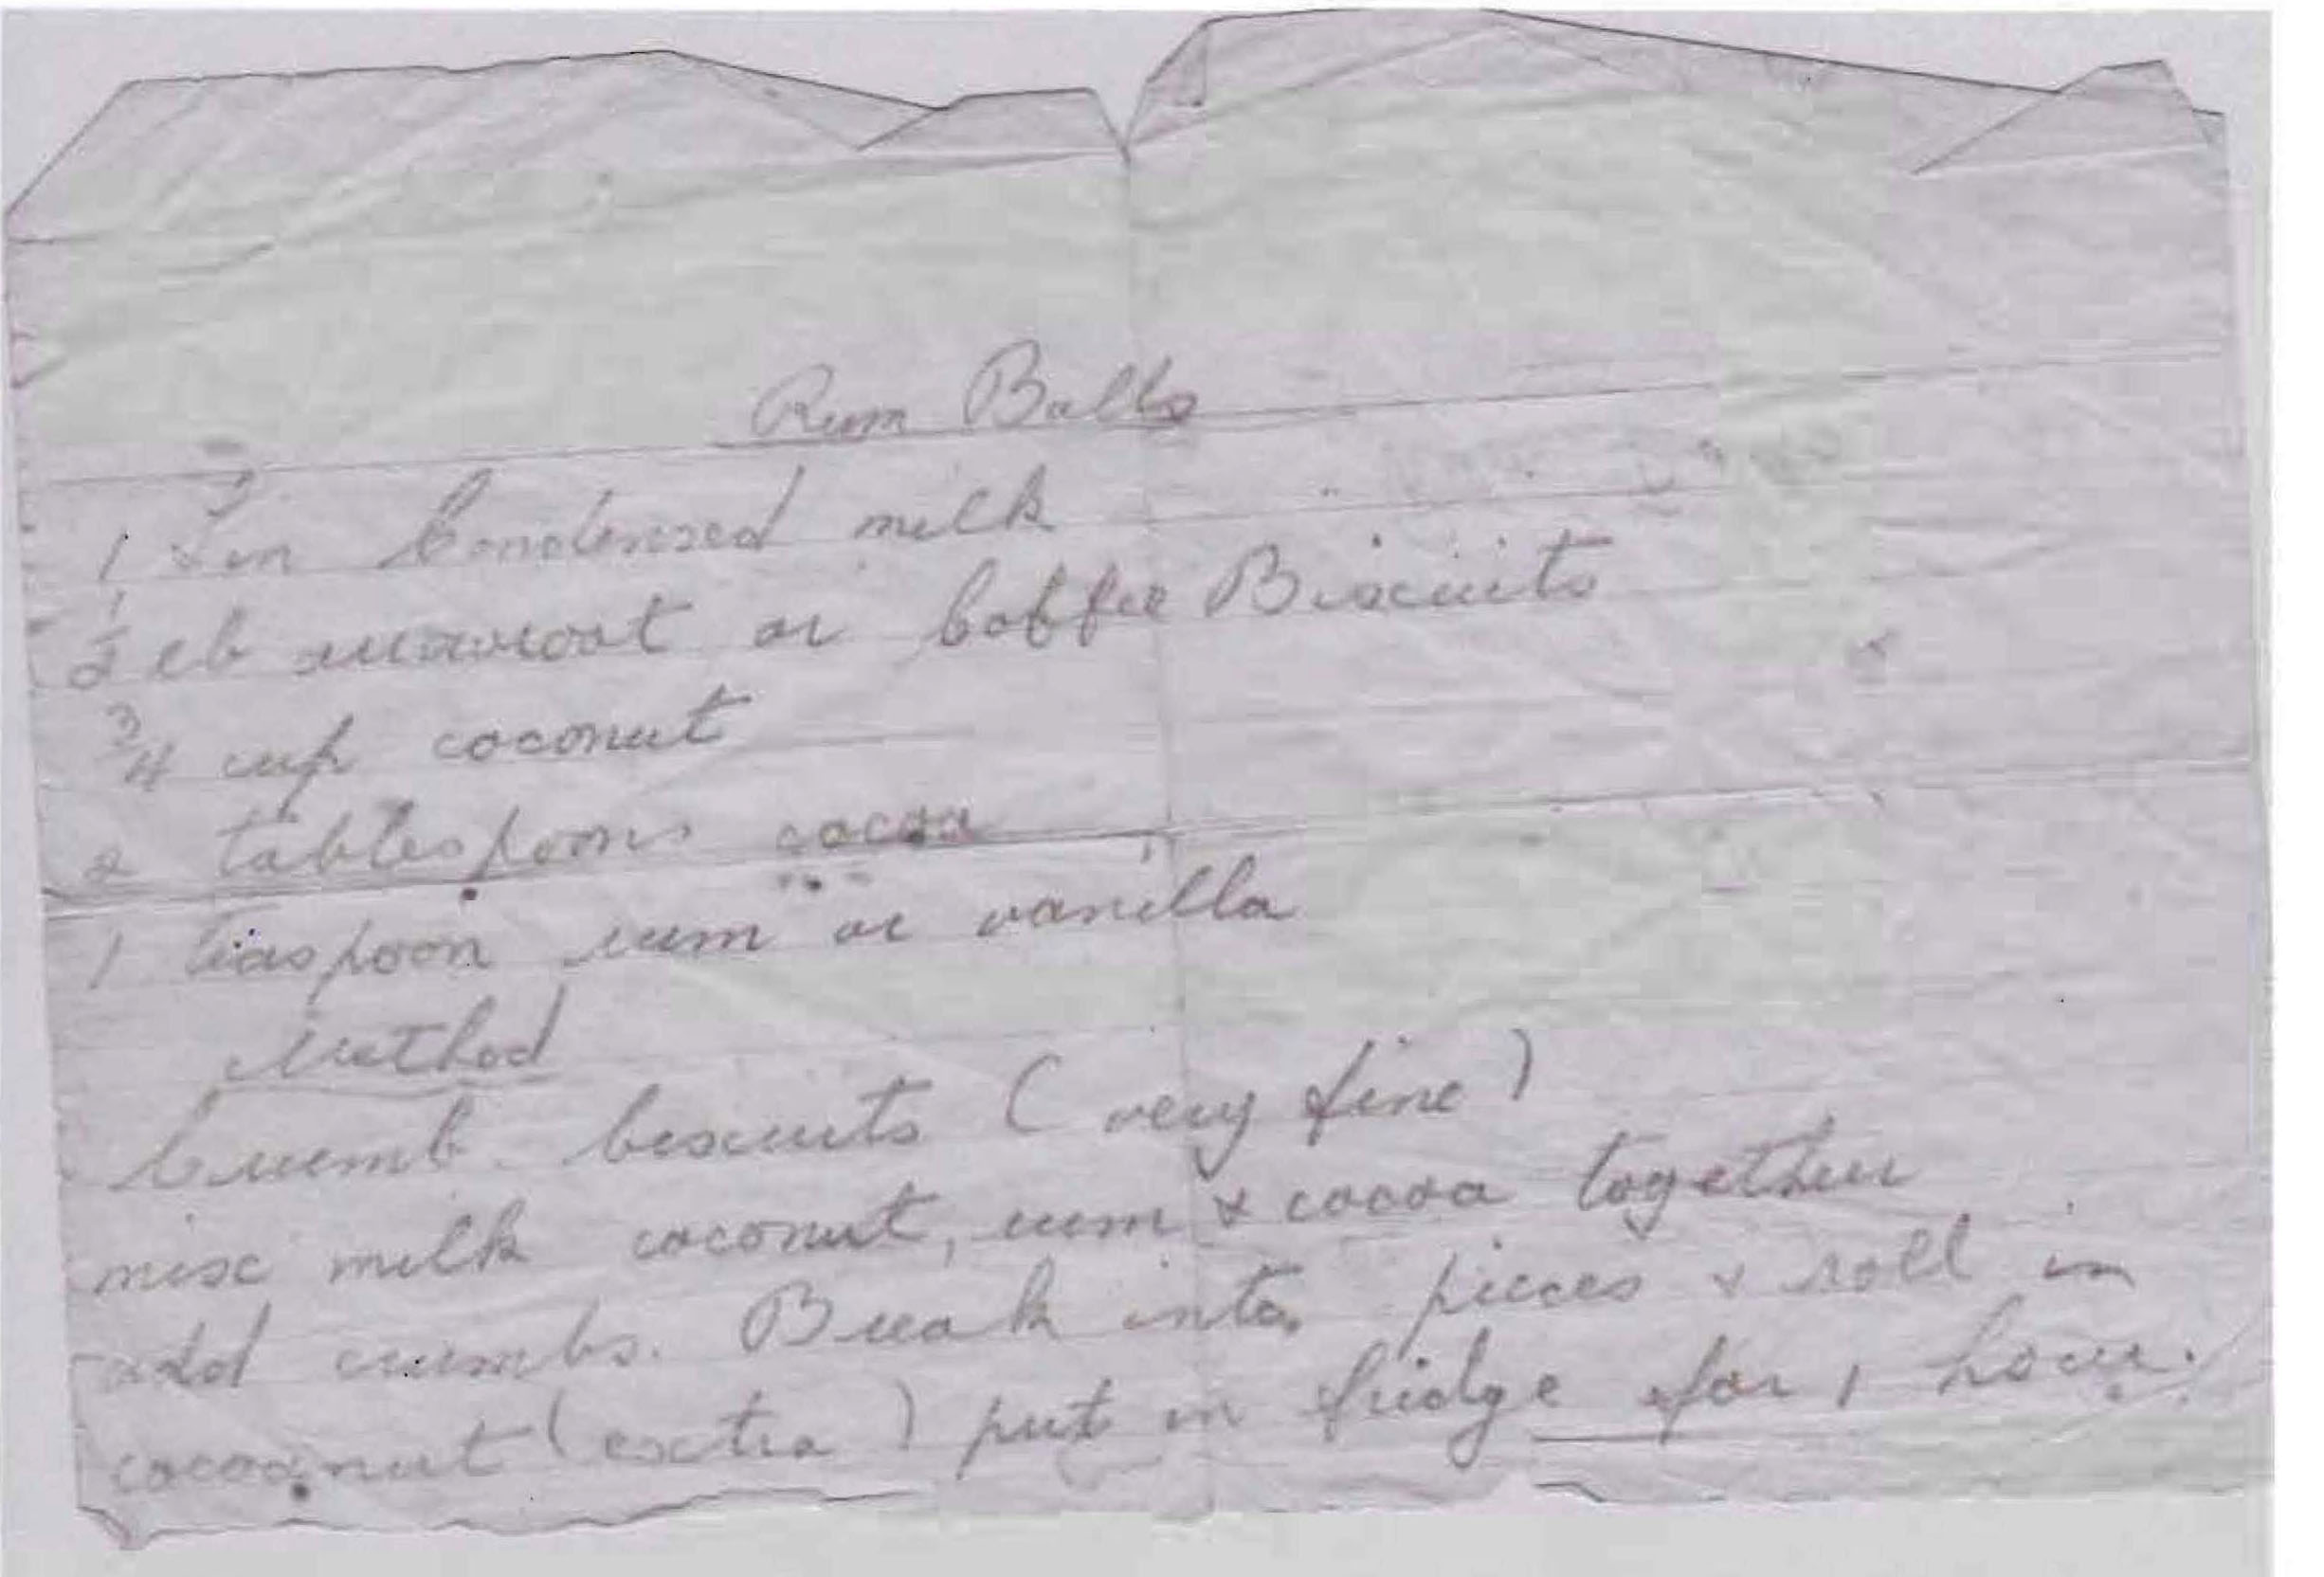 Rum Balls
1 Tin Condensed milk
½ lb arrowroot or Coffee Biscuits
¾ cup coconut
2 tablespoons cocoa
1 teaspoon rum or vanilla
Method
Crumb biscuits (very fine)
mix milk coconut, rum & cocoa together
add crumbs. Break into pieces & roll in
cocoanut (extra) put in fridge for 1 hour.